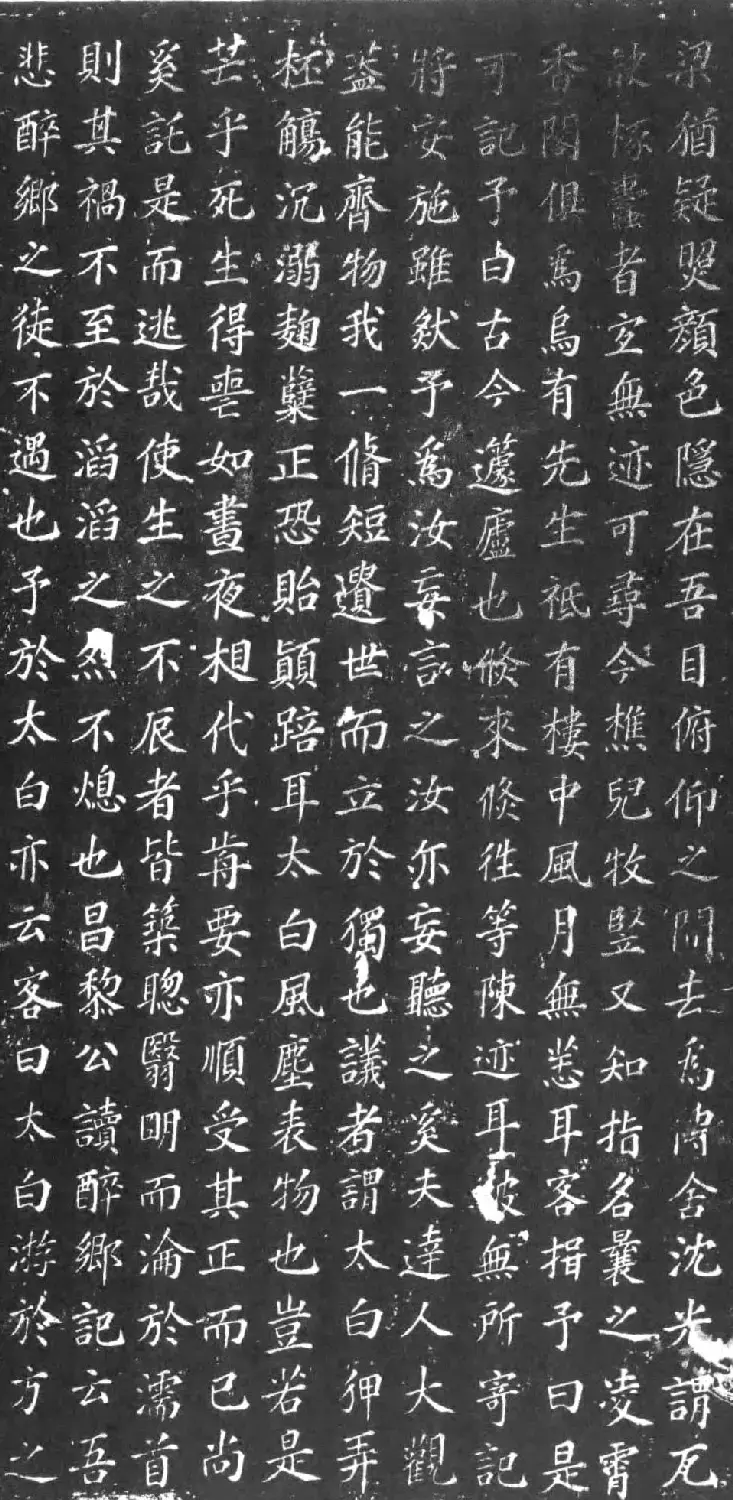 梁猶疑照顏色隱在吾目俯仰之間去為傳舍沈光謂瓦
缺椽蠹者宜無迹可尋今樵兒牧豎又知指名曩之凌霄
香閣俱為烏有先生祇有樓中風月無恙耳客揖予曰是
可記予曰古今蘧廬也倏來倏往等陳迹耳彼無所寄記
將安施雖然予為汝妄言之汝亦妄聽之奚夫達人大觀
蓋能齊物我一脩短遺世而立於獨也議者謂太白狎弄
桮觴沉溺麴糱正恐貽顛踣耳太白風塵表物也豈若是
芒乎死生得喪如晝夜相代乎前要亦順受其正而已尚
奚託是而逃哉使生之不辰者皆築聰翳明而淪於濡首
則其禍不至於滔滔之烈不熄也昌黎公讀醉鄉記云吾
悲醉鄉之徒不遇也予於太白亦云客曰太白游於方之